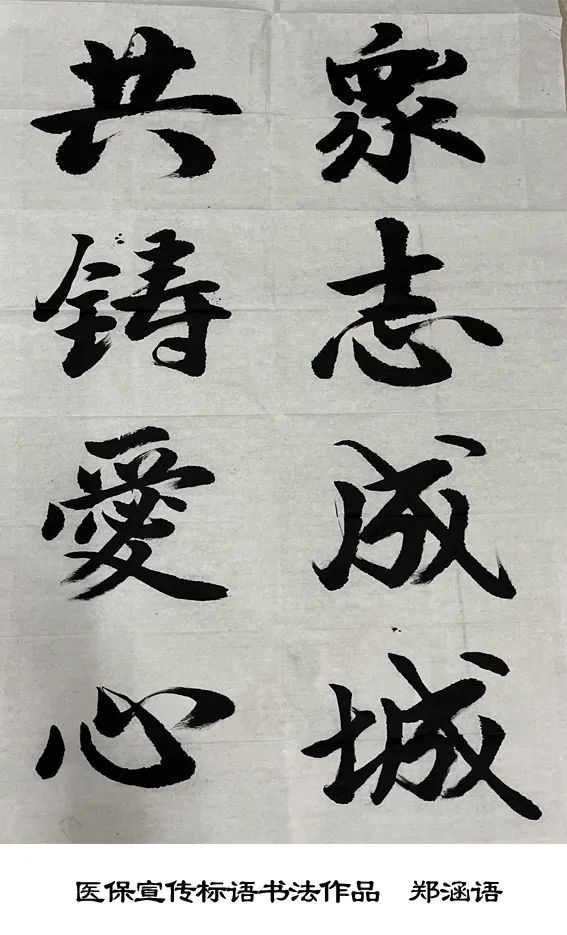 衆志成城
共铸愛心
医保宣传标语书法作品 郑涵语